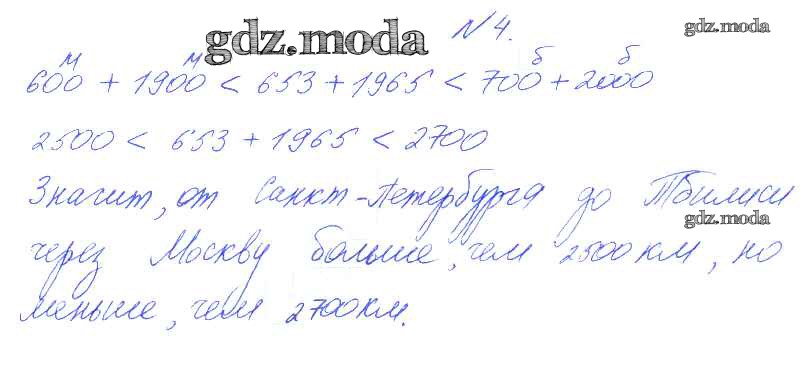 gdz.moda № 4. gdz.moda
м м б б
600 + 1900 < 653 + 1965 < 700 + 2000
2500 < 653 + 1965 < 2700
Значит, от Санкт-Петербурга до Тбилиси
gdz.moda
через Москву больше, чем 2500 км, но
меньше, чем 2700 км.